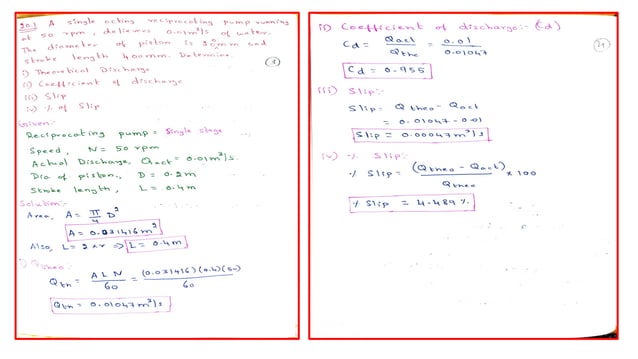 20.1 A single acting reciprocating pump running
at 50 rpm, delivers 0.01m³/s of water.
The diameter of piston is 200mm and
stroke length 400mm. Determine.
i) Theoretical Discharge
ii) Coefficient of discharge
iii) Slip
iv) % of Slip
Given:-
Reciprocating pump = Single stage
Speed, N = 50 rpm
Actual Discharge, Qact = 0.01m³/s.
Dia of piston., D = 0.2m
Stroke length, L = 0.4m
Solution:-
Area, A = π/4 D²
A = 0.031416 m²
Also, L = 2×r => L = 0.4m
i) Qtheo:-
Qth = ALN/60 = (0.031416)(0.4)(50)/60
Qth = 0.01047m³/s
ii) Coefficient of discharge:- (Cd)
Cd = Qact/Qthe = 0.01/0.01047
Cd = 0.955
iii) Slip:-
Slip = Qtheo - Qact
= 0.01047 - 0.01
Slip = 0.00047m³/s
iv) % Slip:-
% Slip = (Qtheo - Qact)/Qtheo × 100
% Slip = 4.489 %.